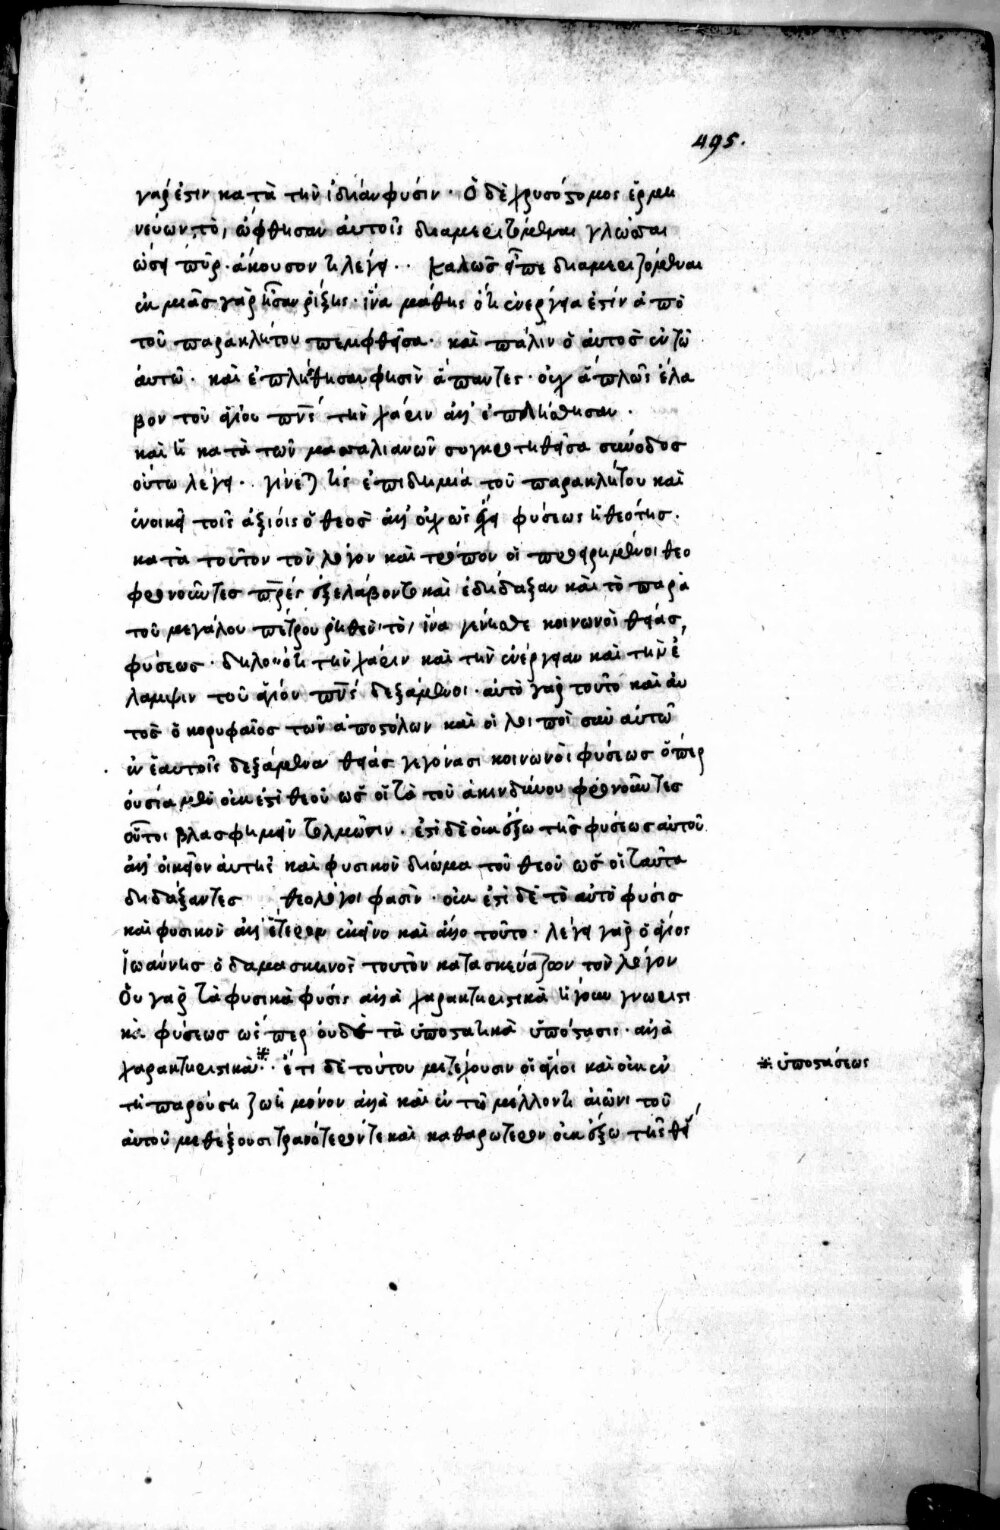 495.
γάρ ἐστιν κατὰ τὴν ἰδίαν φύσιν. Ὁ δὲ χρυσόστομος ἑρμη
νεύων τὸ, ὤφθησαν αὐτοῖς διαμεριζόμεναι γλῶσσαι
ὡσεὶ πῦρ. ἄκουσον τί λέγει. καλῶς εἶπε διαμεριζόμεναι
ἐκ μιᾶς γὰρ ἦσαν ῥίζης. ἵνα μάθῃς ὅτι ἐνέργεια ἐστὶν ἀπὸ
τοῦ παρακλήτου πεμφθεῖσα. καὶ πάλιν ὁ αὐτὸς ἐν τῷ
αὐτῷ. καὶ ἐπλήσθησαν φησὶν ἅπαντες. οὐχ ἁπλῶς ἔλα
βον τοῦ ἁγίου πνς τὴν χάριν ἀλλ' ἐπλήσθησαν.
καὶ ἡ κατὰ τῶν μασσαλιανῶν συγκροτηθεῖσα σύνοδος
οὕτω λέγει. γίνεται τίς ἐπιδημία τοῦ παρακλήτου καὶ
ἐνοικεῖ τοῖς ἀξίοις ὁ θεὸς ἀλλ' οὐχ ὡς ἔχει φύσεως ἡ θεότης.
κατὰ τοῦτον τὸν λόγον καὶ τρόπον οἱ προειρημένοι θεο
φρονοῦντες πρες ἐξελάβοντο καὶ ἐδίδαξαν καὶ τὸ παρὰ
τοῦ μεγάλου πέτρου ῥηθὲν τὸ, ἵνα γένησθε κοινωνοὶ θείας
φύσεως. δηλονότι τὴν χάριν καὶ τὴν ἐνέργειαν καὶ τὴν ἔ
λαμψιν τοῦ ἁγίου πνς δεξάμενοι. αὐτὸ γὰρ τοῦτο καὶ αὐ
τὸς ὁ κορυφαῖος τῶν ἀποστόλων καὶ οἱ λοιποὶ σὺν αὐτῷ
ἐν ἑαυτοῖς δεξάμενοι θείας γεγόνασι κοινωνοὶ φύσεως ὅπερ
οὐσία μὲν οὐκ ἐστὶ θεοῦ ὡς οἱ τὰ τοῦ ἀκινδύνου φρονοῦντες
οὗτοι βλασφημεῖν τολμῶσιν. ἐστὶ δὲ οὐκ ἔξω τῆς φύσεως αὐτοῦ
ἀλλ' οἰκεῖον αὐτῆς καὶ φυσικὸν ἰδίωμα τοῦ θεοῦ ὡς οἱ ταῦτα
διδάξαντες θεολόγοι φασὶν. οὐκ ἐστὶ δὲ τὸ αὐτὸ φύσις
καὶ φυσικὸν ἀλλ' ἕτερον ἐκεῖνο καὶ ἄλλο τοῦτο. λέγει γὰρ ὁ ἅγιος
Ἰωάννης ὁ δαμασκηνὸς τοῦτον κατασκευάζων τὸν λόγον
Οὐ γὰρ τὰ φυσικὰ φύσις ἀλλὰ χαρακτηριστικὰ ἤγουν γνωριστι
κὰ φύσεως ὥσπερ οὐδὲ τὰ ὑποστατικὰ ὑπόστασις. ἀλλὰ
χαρακτηριστικὰ※. ἔτι δὲ τούτου μετέχουσιν οἱ ἅγιοι καὶ οὐκ ἐν
τῇ παρούσῃ ζωῇ μόνον ἀλλὰ καὶ ἐν τῷ μέλλοντι αἰῶνι τοῦ
αὐτοῦ μεθέξουσι τρανότερόν τε καὶ καθαρώτερον οὐκ ἔξω τῆς θεί
※ ὑποστάσεως